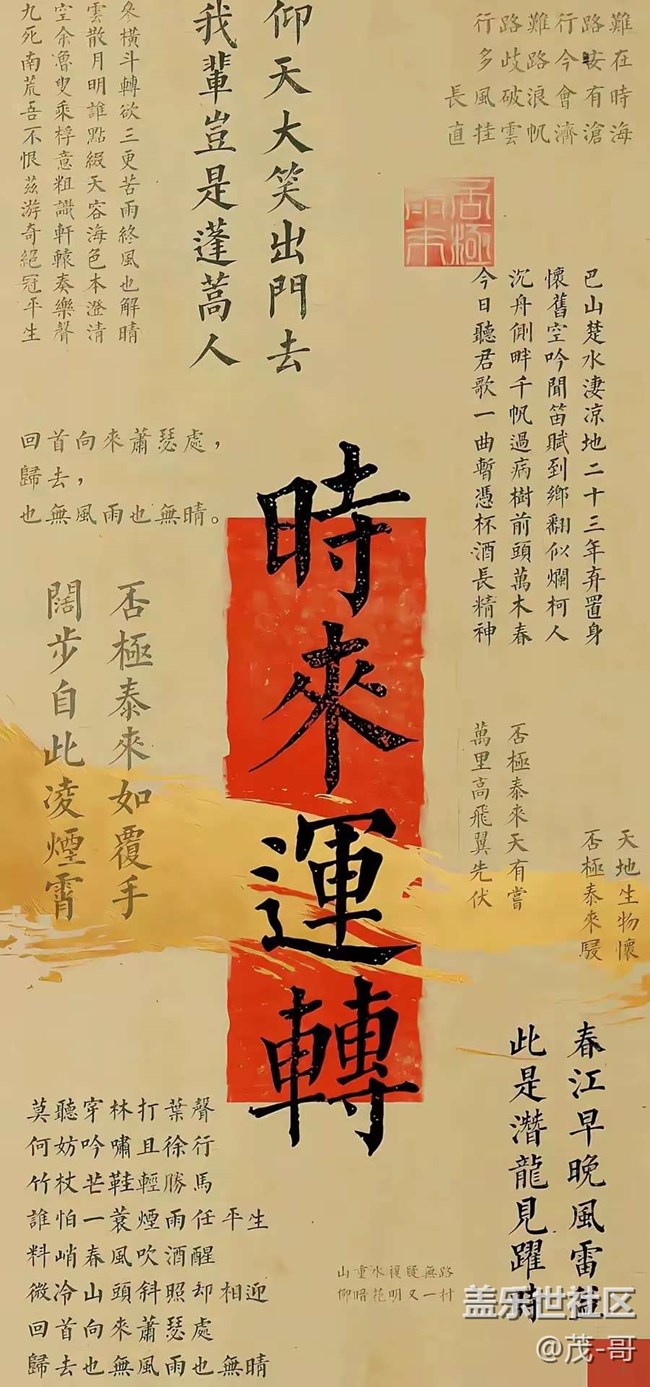 行路難行路難
多歧路今安在
長風破浪會有時
直挂雲帆濟滄海
仰天大笑出門去
我輩豈是蓬蒿人
參橫斗轉欲三更苦雨終風也解晴
雲散月明誰點綴天容海色本澄清
空余魯叟乘桴意粗識軒轅奏樂聲
九死南荒吾不恨茲游奇絕冠平生
巴山楚水淒涼地二十三年弃置身
懷舊空吟聞笛賦到鄉翻似爛柯人
沉舟側畔千帆過病樹前頭萬木春
今日聽君歌一曲暫憑杯酒長精神
回首向來蕭瑟處，
歸去，
也無風雨也無晴。
時來運轉
否極泰來如覆手
闊步自此凌煙霄
否極泰來天有嘗
萬里高飛翼先伏
天地生物懷
否極泰來
春江早晚風雷
此是潛龍見躍時
莫聽穿林打葉聲
何妨吟嘯且徐行
竹杖芒鞋輕勝馬
誰怕一蓑煙雨任平生
料峭春風吹酒醒
微冷山頭斜照却相迎
回首向來蕭瑟處
歸去也無風雨也無晴
山重水複疑無路
柳暗花明又一村
盖乐世社区
@茂-哥